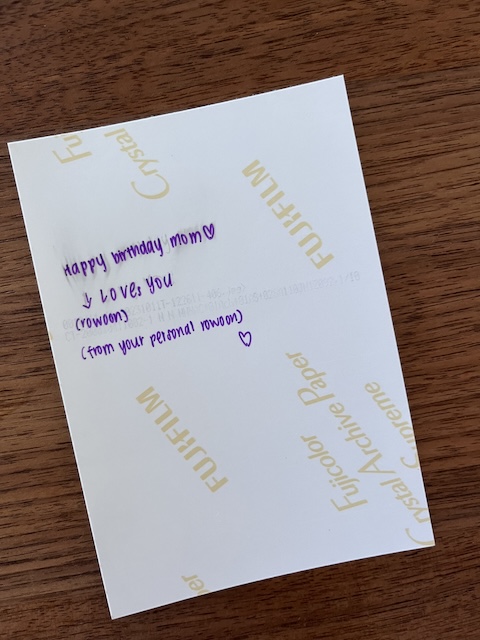 Fu
Crystal
FUJIFILM
Happy birthday mom♡
↓ Loves you
(rowoon)
(from your personal rowoon)
♡
FUJIFILM
Fujicolor
Crystal Archive Paper
Supreme
per